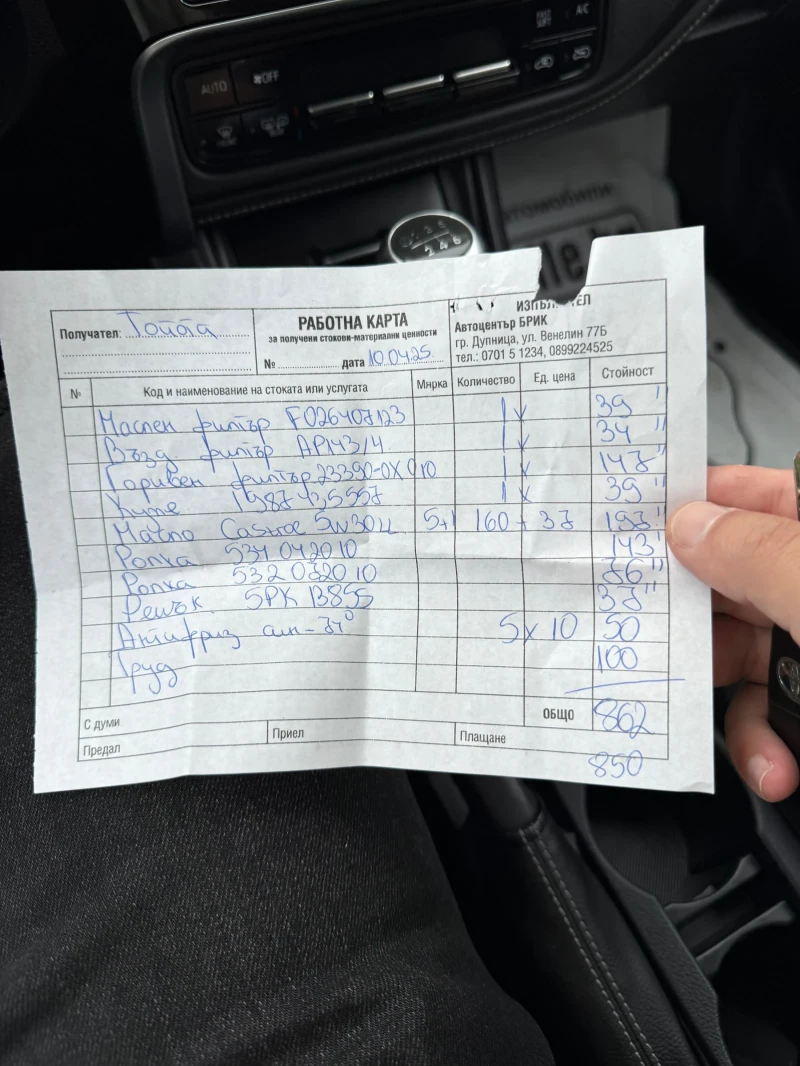 AUTO
OFF
FAST
SOFT
A/C
автомобили
Получател: Тойота
РАБОТНА КАРТА
за получени стоково-материални ценности
№ дата 10.04.25
Автоцентър БРИК
гр. Дупница, ул. Венелин 77Б
тел.: 0701 5 1234, 0899224525
№ Код и наименование на стоката или услугата Мярка Количество Ед. цена Стойност
Маслен филтър F026407123 1 x 39 "
Възд филтър AP143/4 1 x 34 "
Горивен филтър 23390-0X010 1 x 147 "
Купе 1987435557 1 x 39 "
Масло Castrol 5W30LL 5+1 160 + 37 197 "
Ролка 534 0420 10 143 "
Ролка 532 0720 10 76 "
Ремък 5PK 1385S 37 "
Антифриз син -37° 5 x 10 50
Труд 100
ОБЩО 862
С думи
Предал Приел Плащане
850